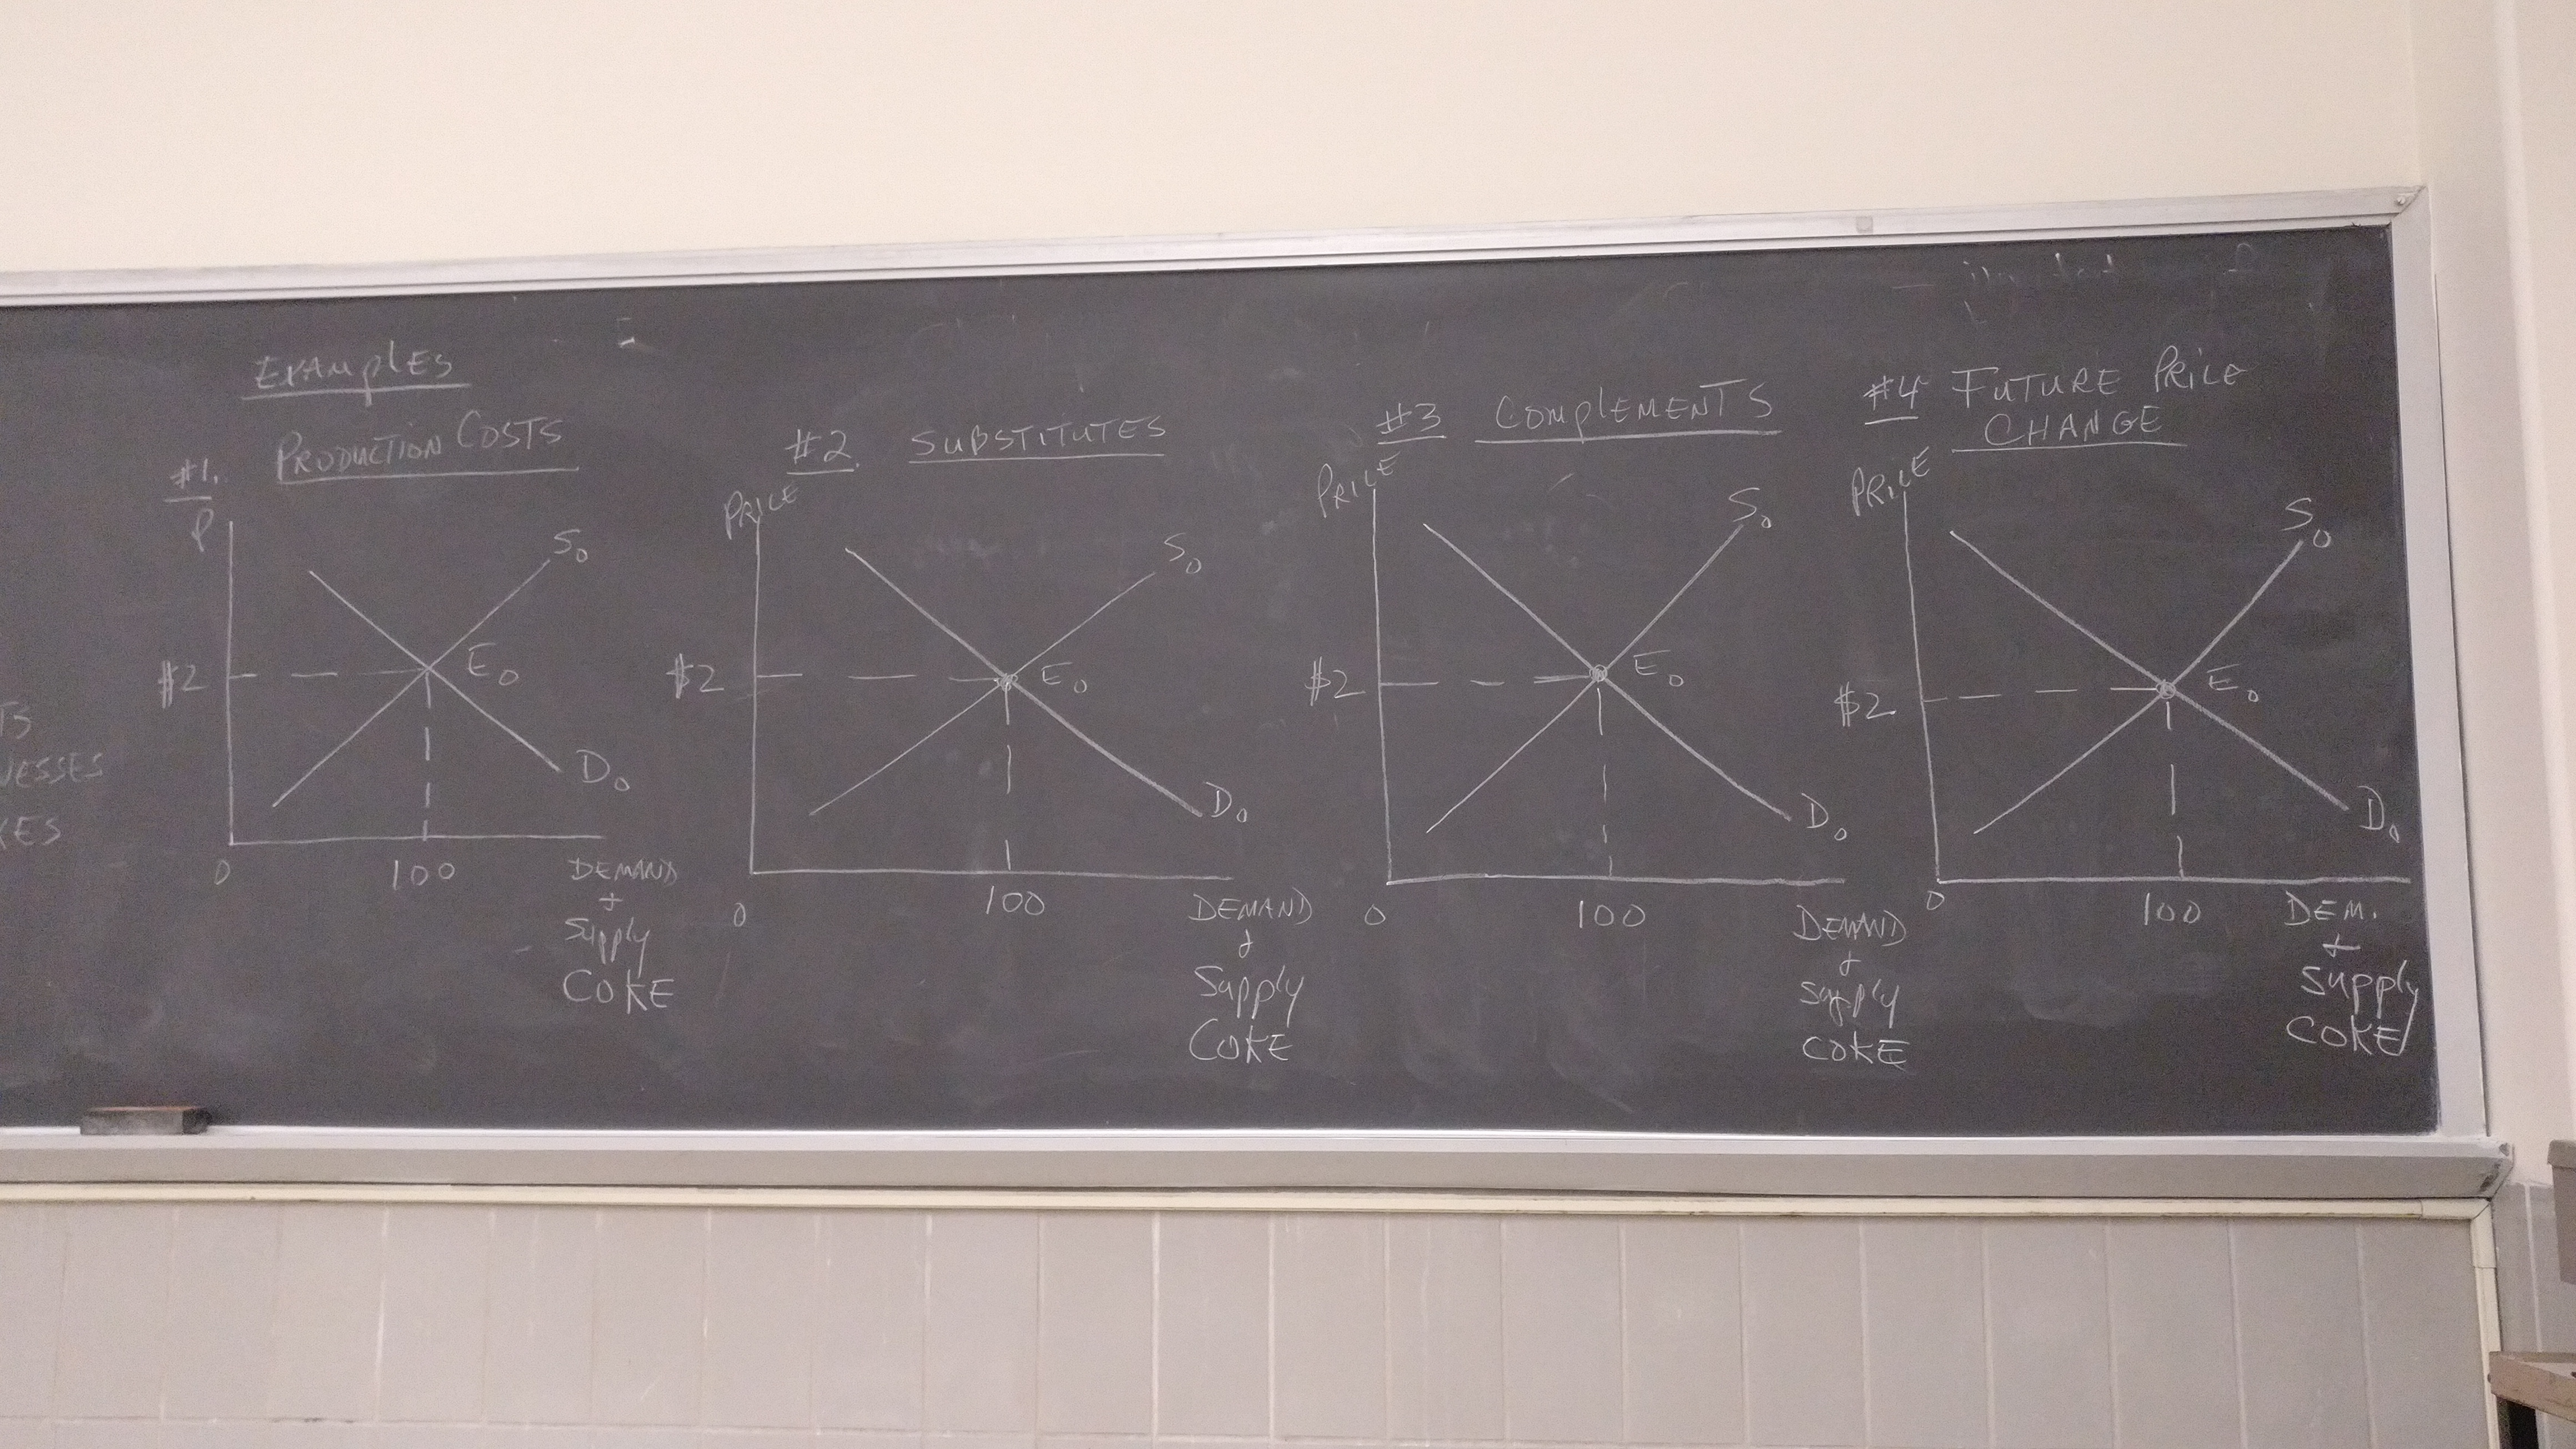 Examples
#1.
Production Costs
P
$2
S0
E0
D0
0
100
Demand
+
Supply
Coke
#2.
Substitutes
Price
$2
S0
E0
D0
0
100
Demand
+
Supply
Coke
#3
Complements
Price
$2
S0
E0
D0
0
100
Demand
+
Supply
Coke
#4 Future Price
Change
Price
$2
S0
E0
D0
0
100
Dem.
+
Supply
Coke